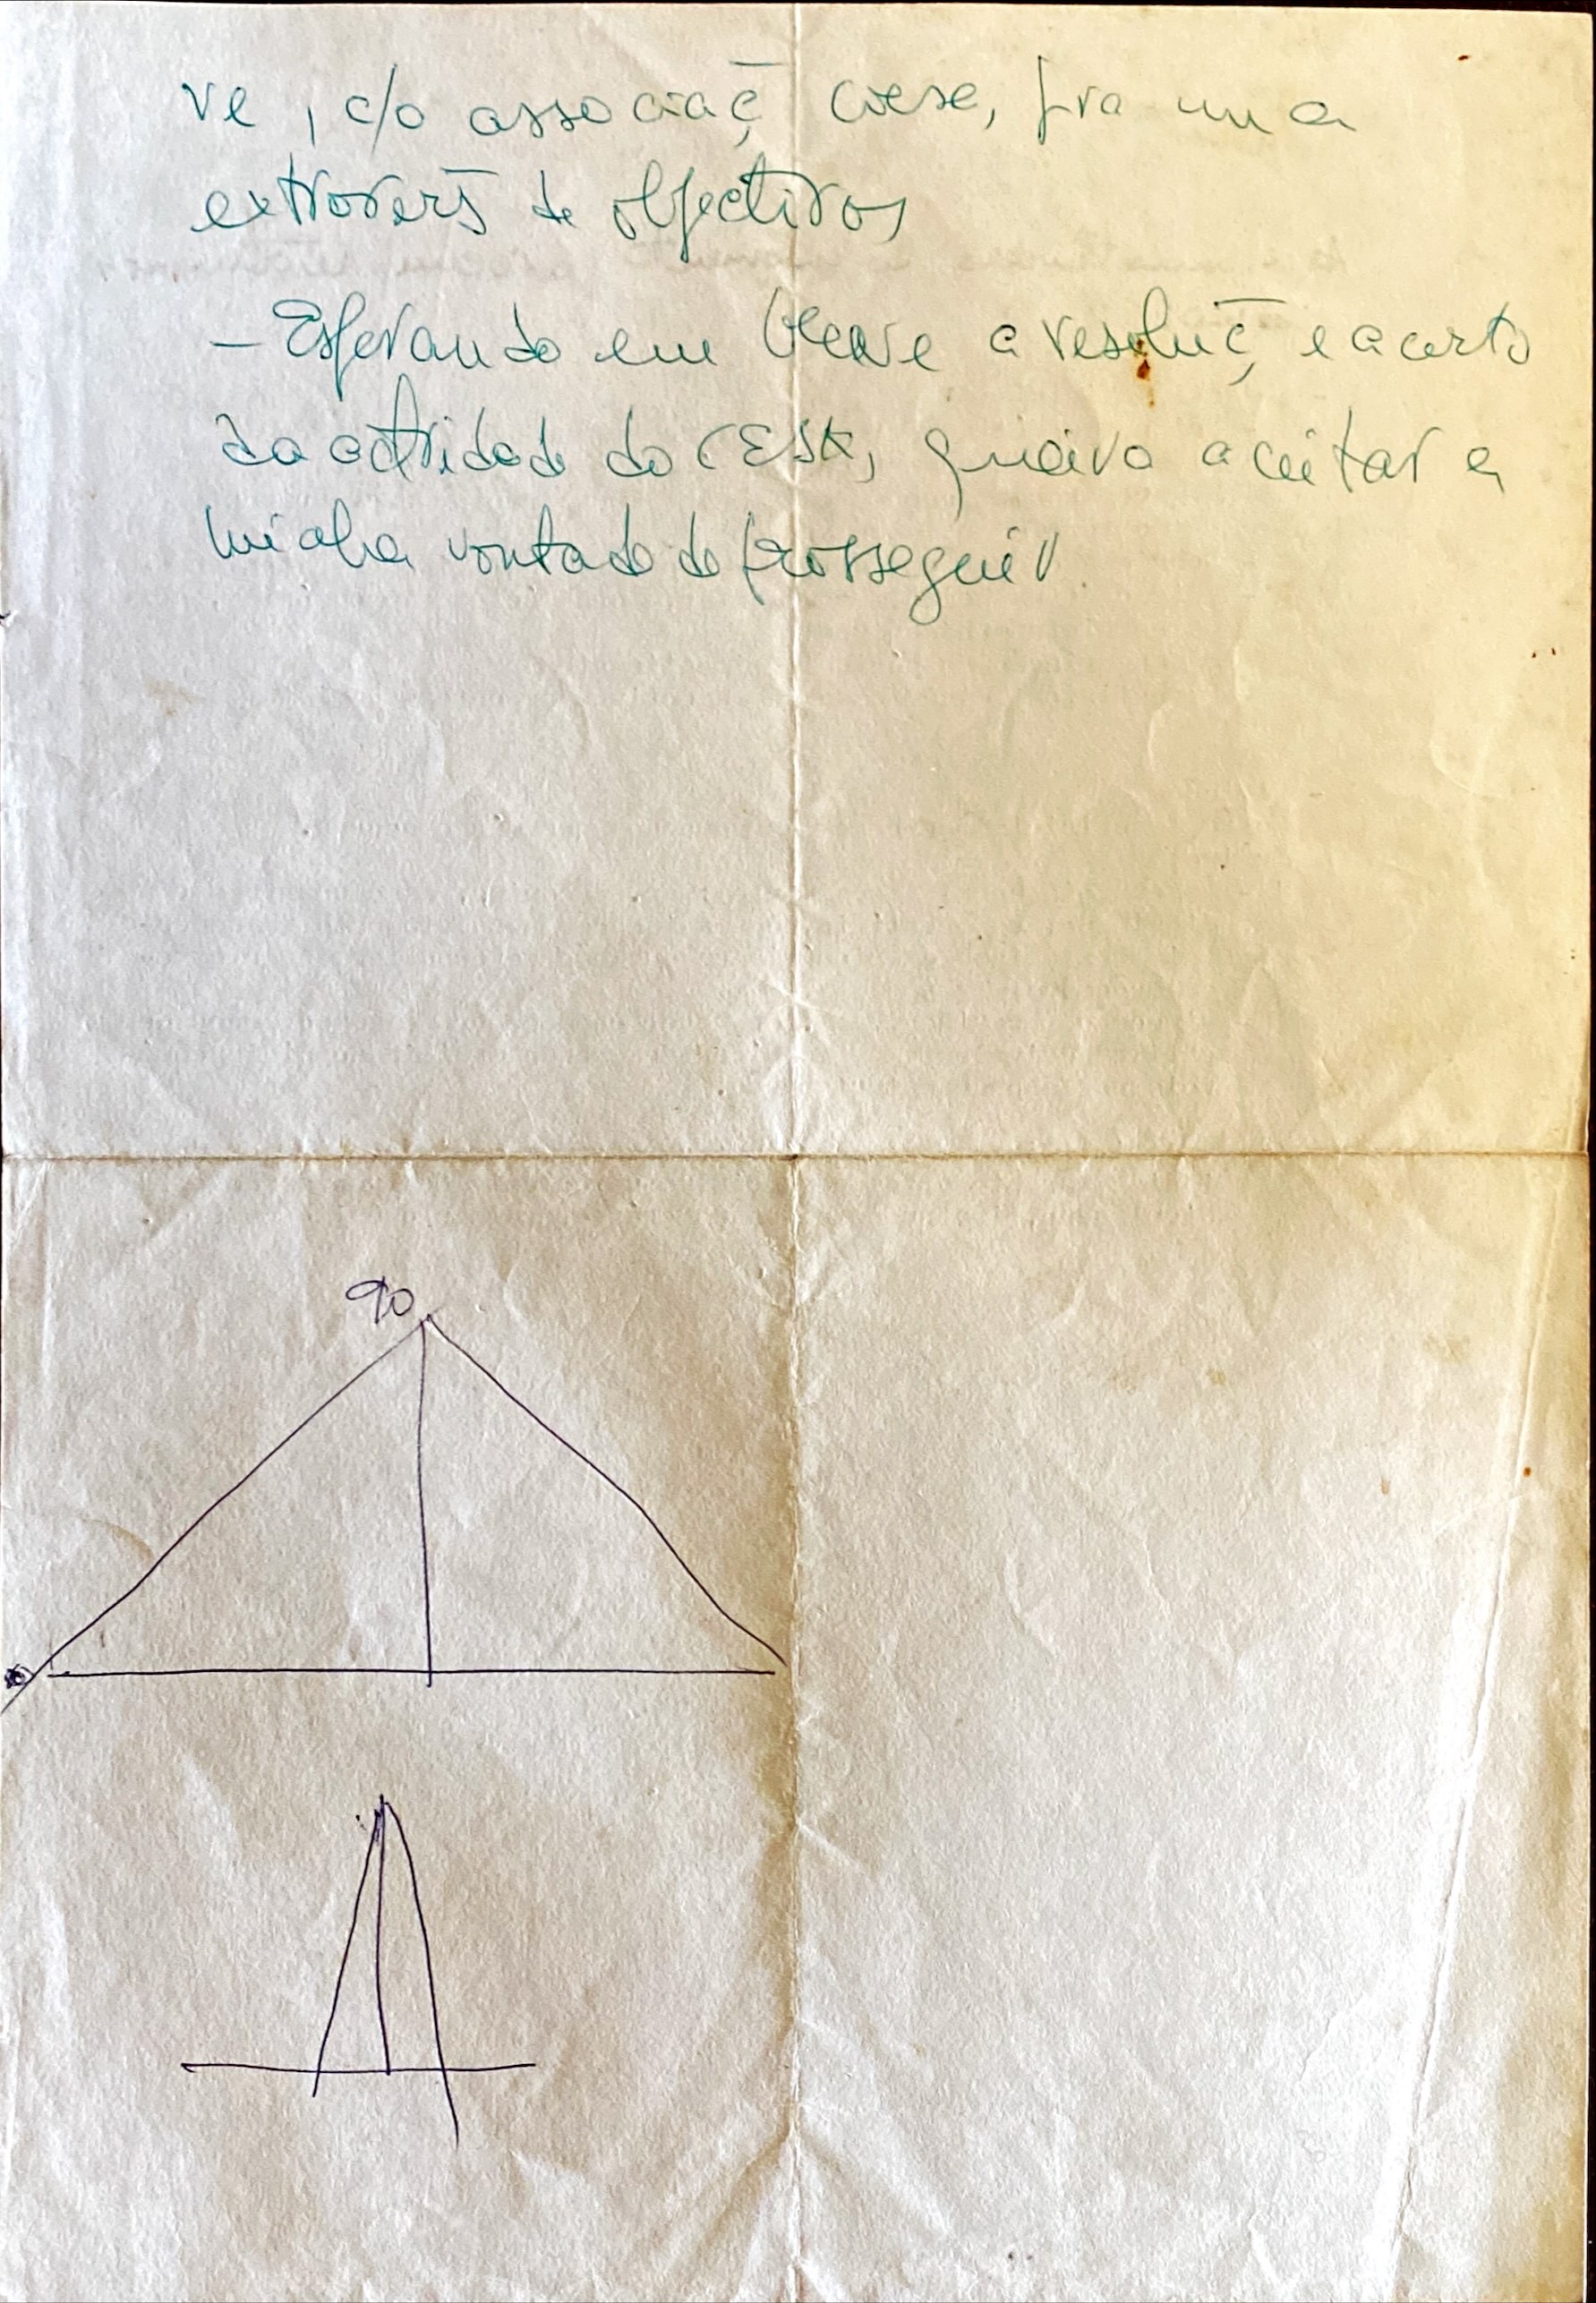 ve, c/o associaç̄ coesa, pra uma
extrovers̄ de objectivos
– Esperando em breve a resoluç̄, e acerto
da actividade do CESA, queira aceitar a
minha vontade de prosseguir.
90